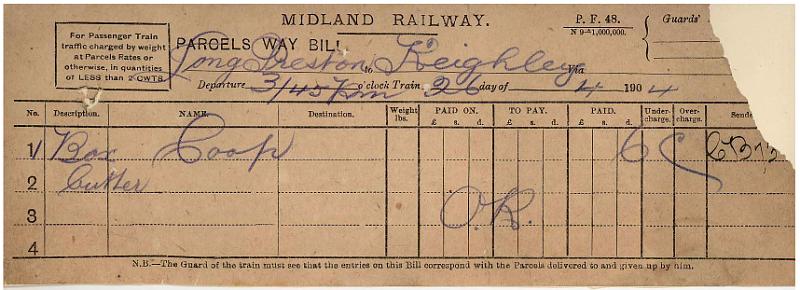 MIDLAND RAILWAY.
P. F. 48.
N 9-1,000,000.
Guards'
For Passenger Train
traffic charged by weight
at Parcels Rates or
otherwise, in quantities
of LESS than 2 CWTS.
PARCELS WAY BILL
Long Preston to Keighley Via
Departure 3/45 pm o'clock Train, 26 day of 4 1904
No. Description. NAME. Destination. Weight lbs. PAID ON. TO PAY. PAID. Under-charge. Over-charge. Sende
£ s. d. £ s. d. £ s. d.
1 Box Coop 6
2 Butter
O.R.
3
4
N.B.—The Guard of the train must see that the entries on this Bill correspond with the Parcels delivered to and given up by him.